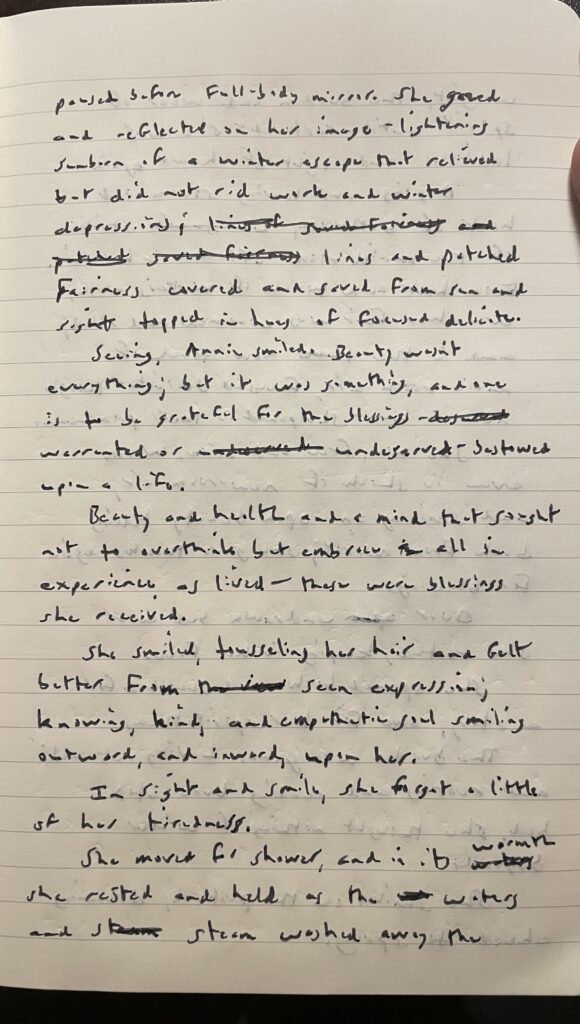 paused before full-body mirror. She gazed
and reflected on her image - lightening
sunburn of a winter escape that relieved
but did not rid work and winter
depression; lines of saved fairness and
patched saved fairness lines and patched
fairness covered and saved from sun and
sight topped in hues of focused delicate.
Seeing, Annie smiled. Beauty wasn't
everything; but it was something, and one
is to be grateful for the blessings -
warranted or undeserved - bestowed
upon a life.
Beauty and health and a mind that sought
not to overthink but embrace all in
experience as lived - these were blessings
she received.
She smiled, tousseling her hair and felt
better from the view seen expression;
knowing, kind, and empathetic soul smiling
outward, and inwardly upon her.
In sight and smile, she forgot a little
of her tiredness.
She moved for shower, and in its warmth
she rested and held as the waters
and steam steam washed away the